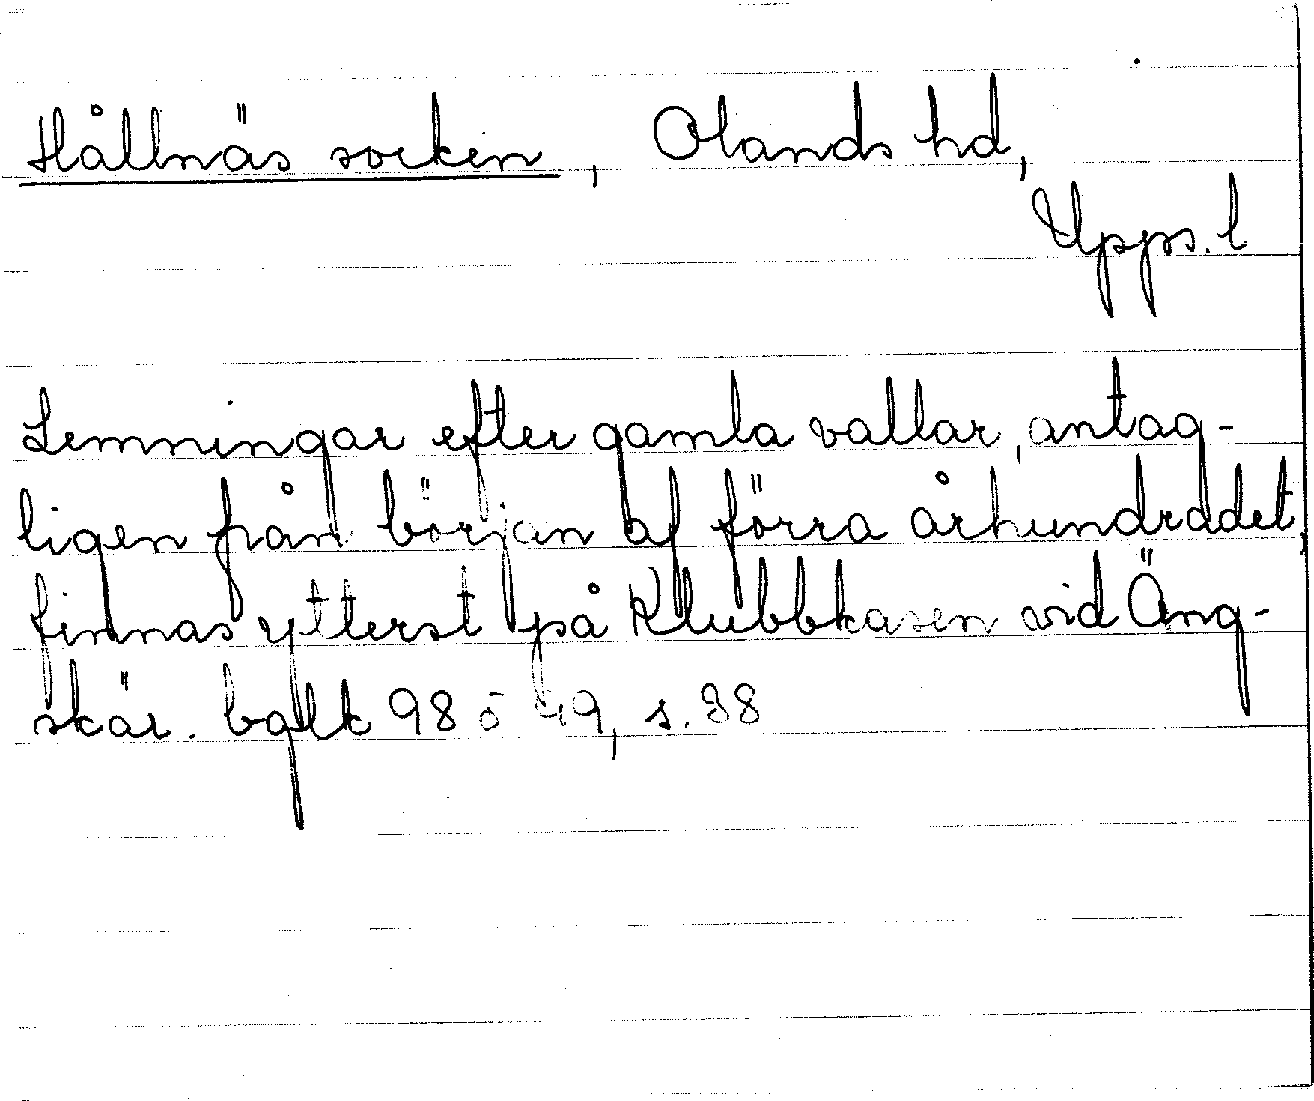 Hållnäs socken, Olands hd,
Upps. l
Lemningar efter gamla vallar, antag-
ligen från början af förra århundradet
finnas ytterst på Klubbkasen vid Äng-
skär. 98 o 99, s. 38